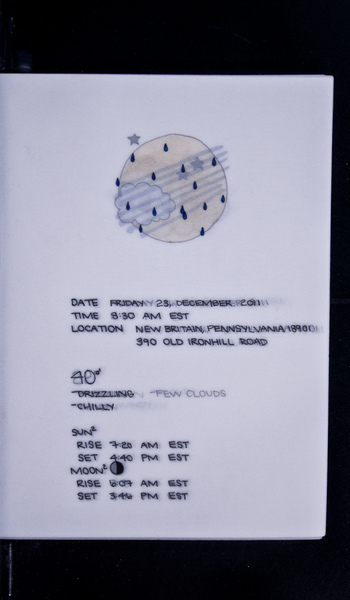 DATE FRIDAY 23, DECEMBER 2011
TIME 8:30 AM EST
LOCATION NEW BRITAIN, PENNSYLVANIA 18901
390 OLD IRONHILL ROAD
40°
-DRIZZLING -FEW CLOUDS
-CHILLY
SUN²
RISE 7:20 AM EST
SET 4:40 PM EST
MOON²
RISE AM EST
SET 3:46 PM EST